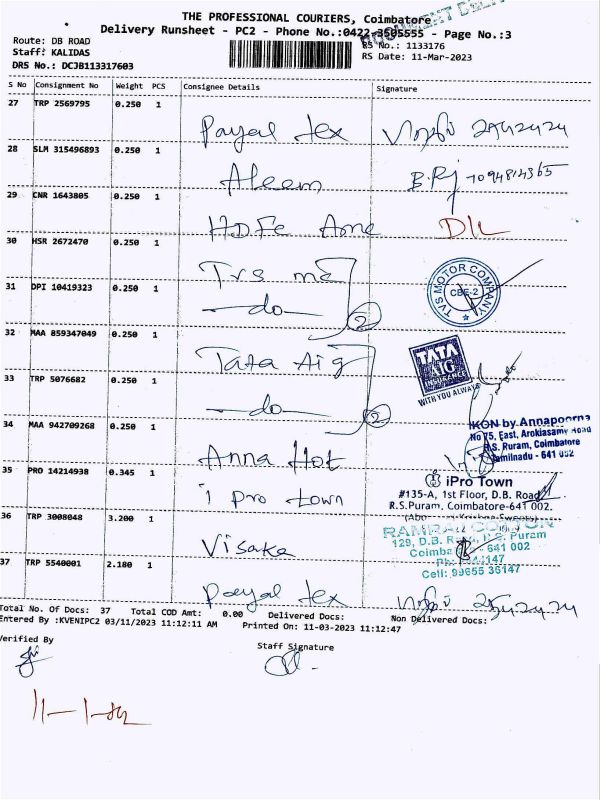 THE PROFESSIONAL COURIERS, Coimbatore
Delivery Runsheet - PC2 - Phone No.:0422-3505555 - Page No.:3
Route: DB ROAD
RS No.: 1133176
Staff: KALIDAS
RS Date: 11-Mar-2023
DRS No.: DCJB113317603
S No Consignment No Weight PCS Consignee Details Signature
27 TRP 2569795 0.250 1
Payal tex
28 SLM 315496893 0.250 1
Aleem B.Rj 7094814365
29 CNR 1643805 0.250 1
HDFC
30 HSR 2672470 0.250 1
Tvs mc
TVS MOTOR COMPANY
CBE-2
31 DPI 10419323 0.250 1
-do- 2
32 MAA 859347049 0.250 1
Tata Aig
TATA AIG INSURANCE
WITH YOU ALWAYS
33 TRP 5076682 0.250 1
-do- 2
34 MAA 942709268 0.250 1
Anna Hot
IKON by Annapoorna
No 75, East, Arokiasamy Road
R.S. Puram, Coimbatore
Tamilnadu - 641 002
35 PRO 14214938 0.345 1
i pro town
iPro Town
#135-A, 1st Floor, D.B. Road
R.S.Puram, Coimbatore-641 002.
36 TRP 3008048 3.200 1
Visaka
COTTON
129, D.B. R.S. Puram
641 002
Cell: 99655 36147
37 TRP 5540001 2.180 1
Payal tex
Total No. Of Docs: 37 Total COD Amt: 0.00 Delivered Docs: Non Delivered Docs:
Entered By :KVENIPC2 03/11/2023 11:12:11 AM Printed On: 11-03-2023 11:12:47
Verified By
Staff Signature